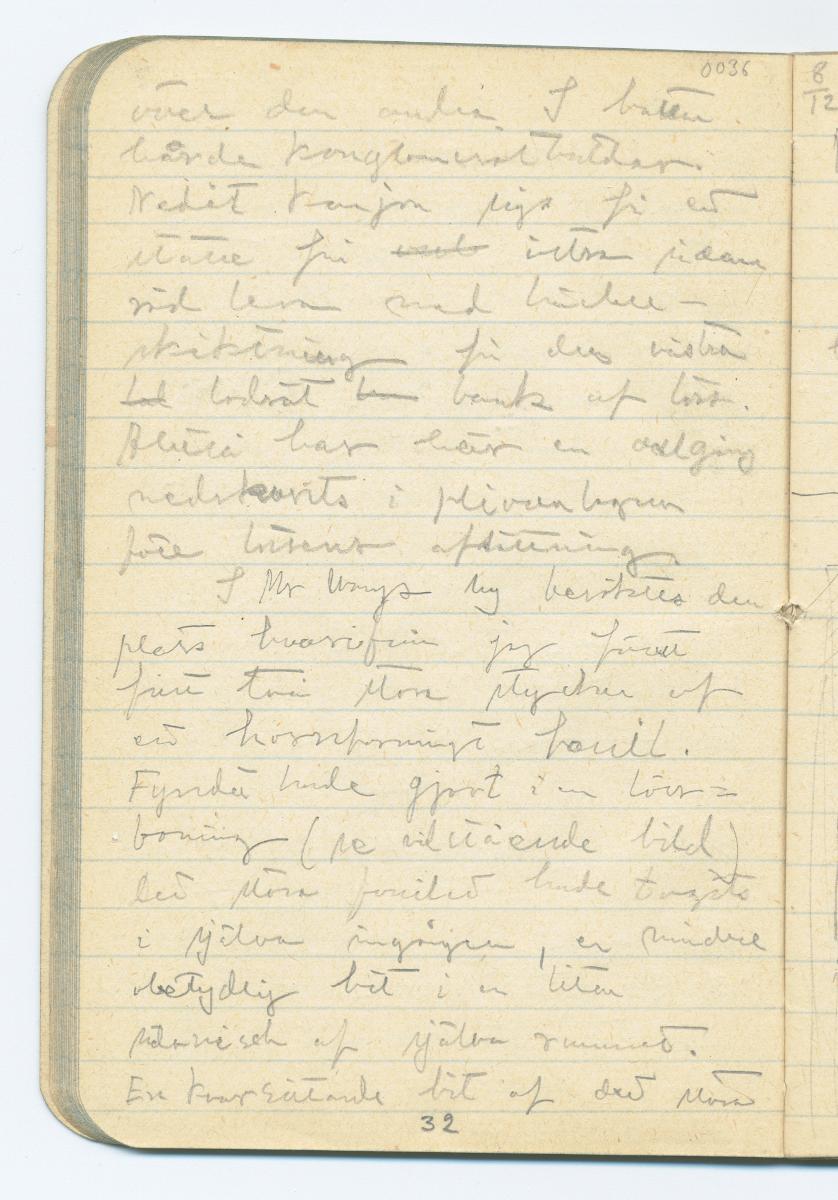 0036
över den andra. I botten
hårda konglomeratbäddar.
Nedåt kanjon sigs på ett
ställe på östra sidan
röd lera med
skiktning på den västra
lodrät bank af löss.
Alltså har här en dalgång
nedskurits i pliocenlagren
före lössens afsättning.
I Mr Wangs by besöktes den
plats hvarifrån jag fått
två stora stycken af
ett hornformigt fossil.
Fyndet hade gjort i en löss-
boning (se vidstående bild)
Det stora fossilet hade tagits
i själva ingången, en mindre
obetydlig bit i en liten
sidonisch af själva rummet.
En kvarsittande bit af det stora
32
8
12